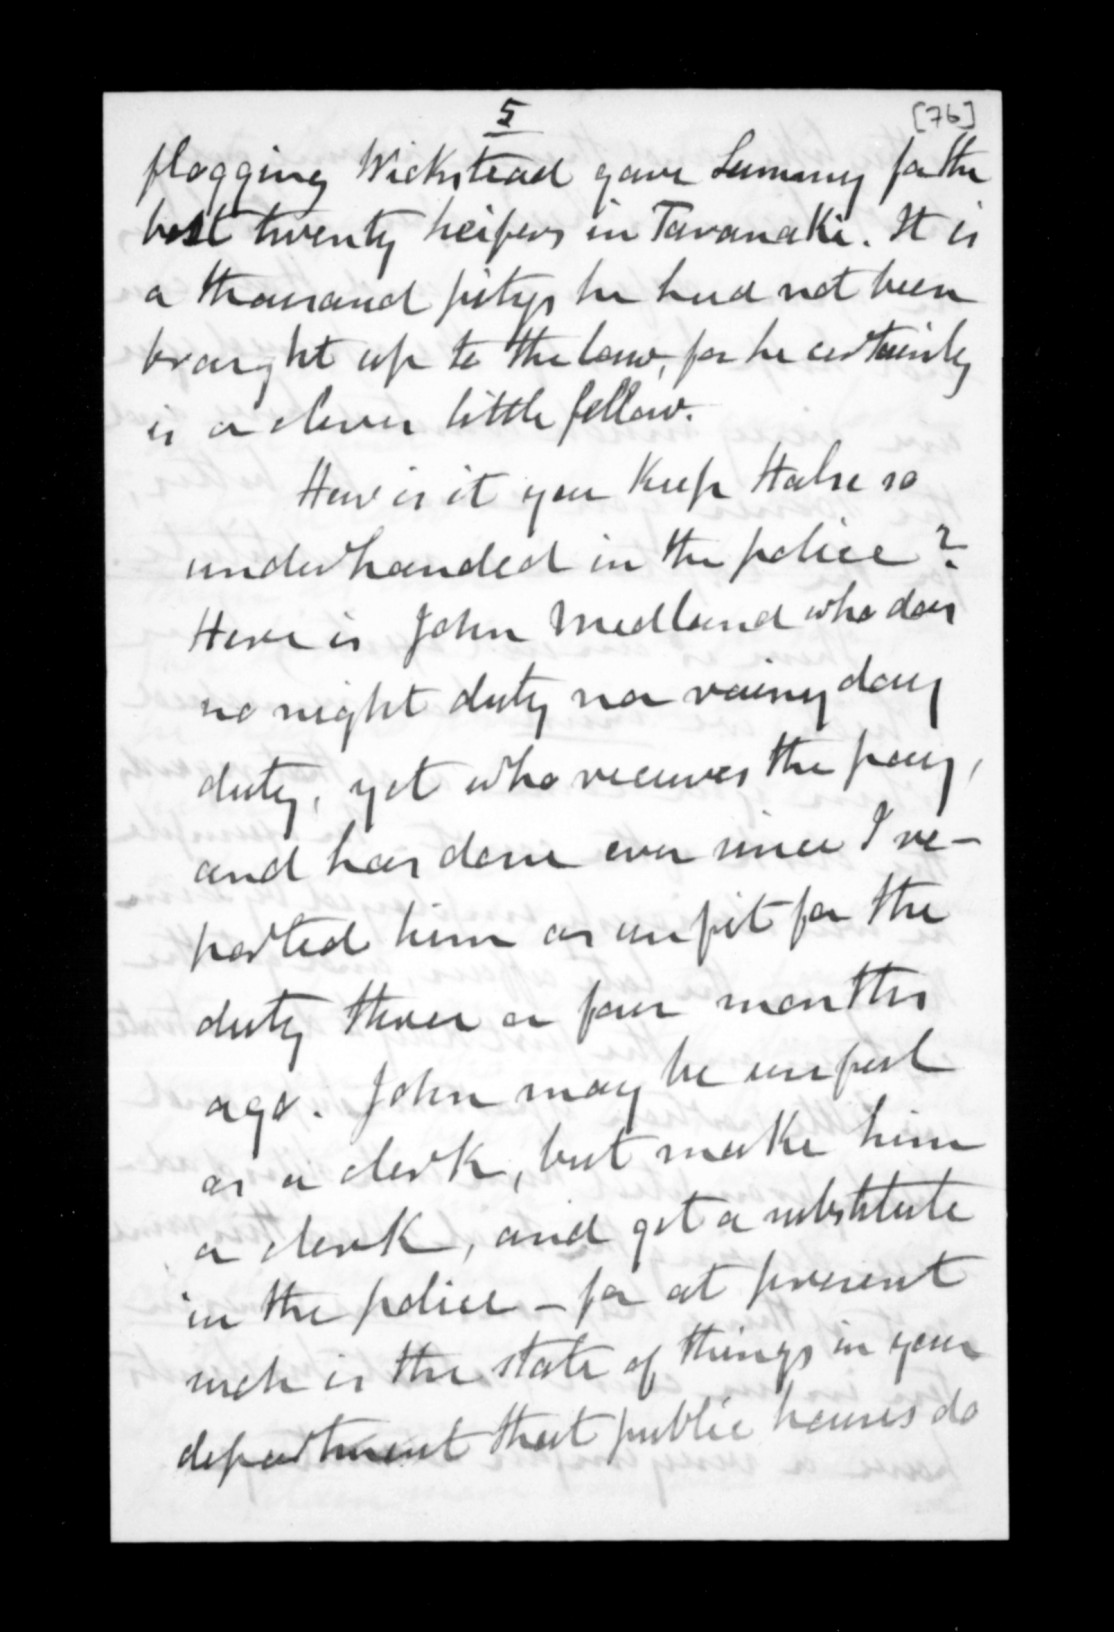 5
[76]
flogging Wickstead gave Sammy for the
best twenty heifers in Taranaki. It is
a thousand pitys he had not been
brought up to the law, for he certainly
is a clever little fellow.
How is it you keep Halse so
underhanded in the police?
Here is John Medland who does
no night duty nor rainy day
duty, yet who receives the pay,
and has done ever since I re-
ported him as unfit for the
duty three or four months
ago. John may be useful
as a clerk, but make him
a clerk, and get a substitute
in the police - for at present
such is the state of things in your
department that public houses do